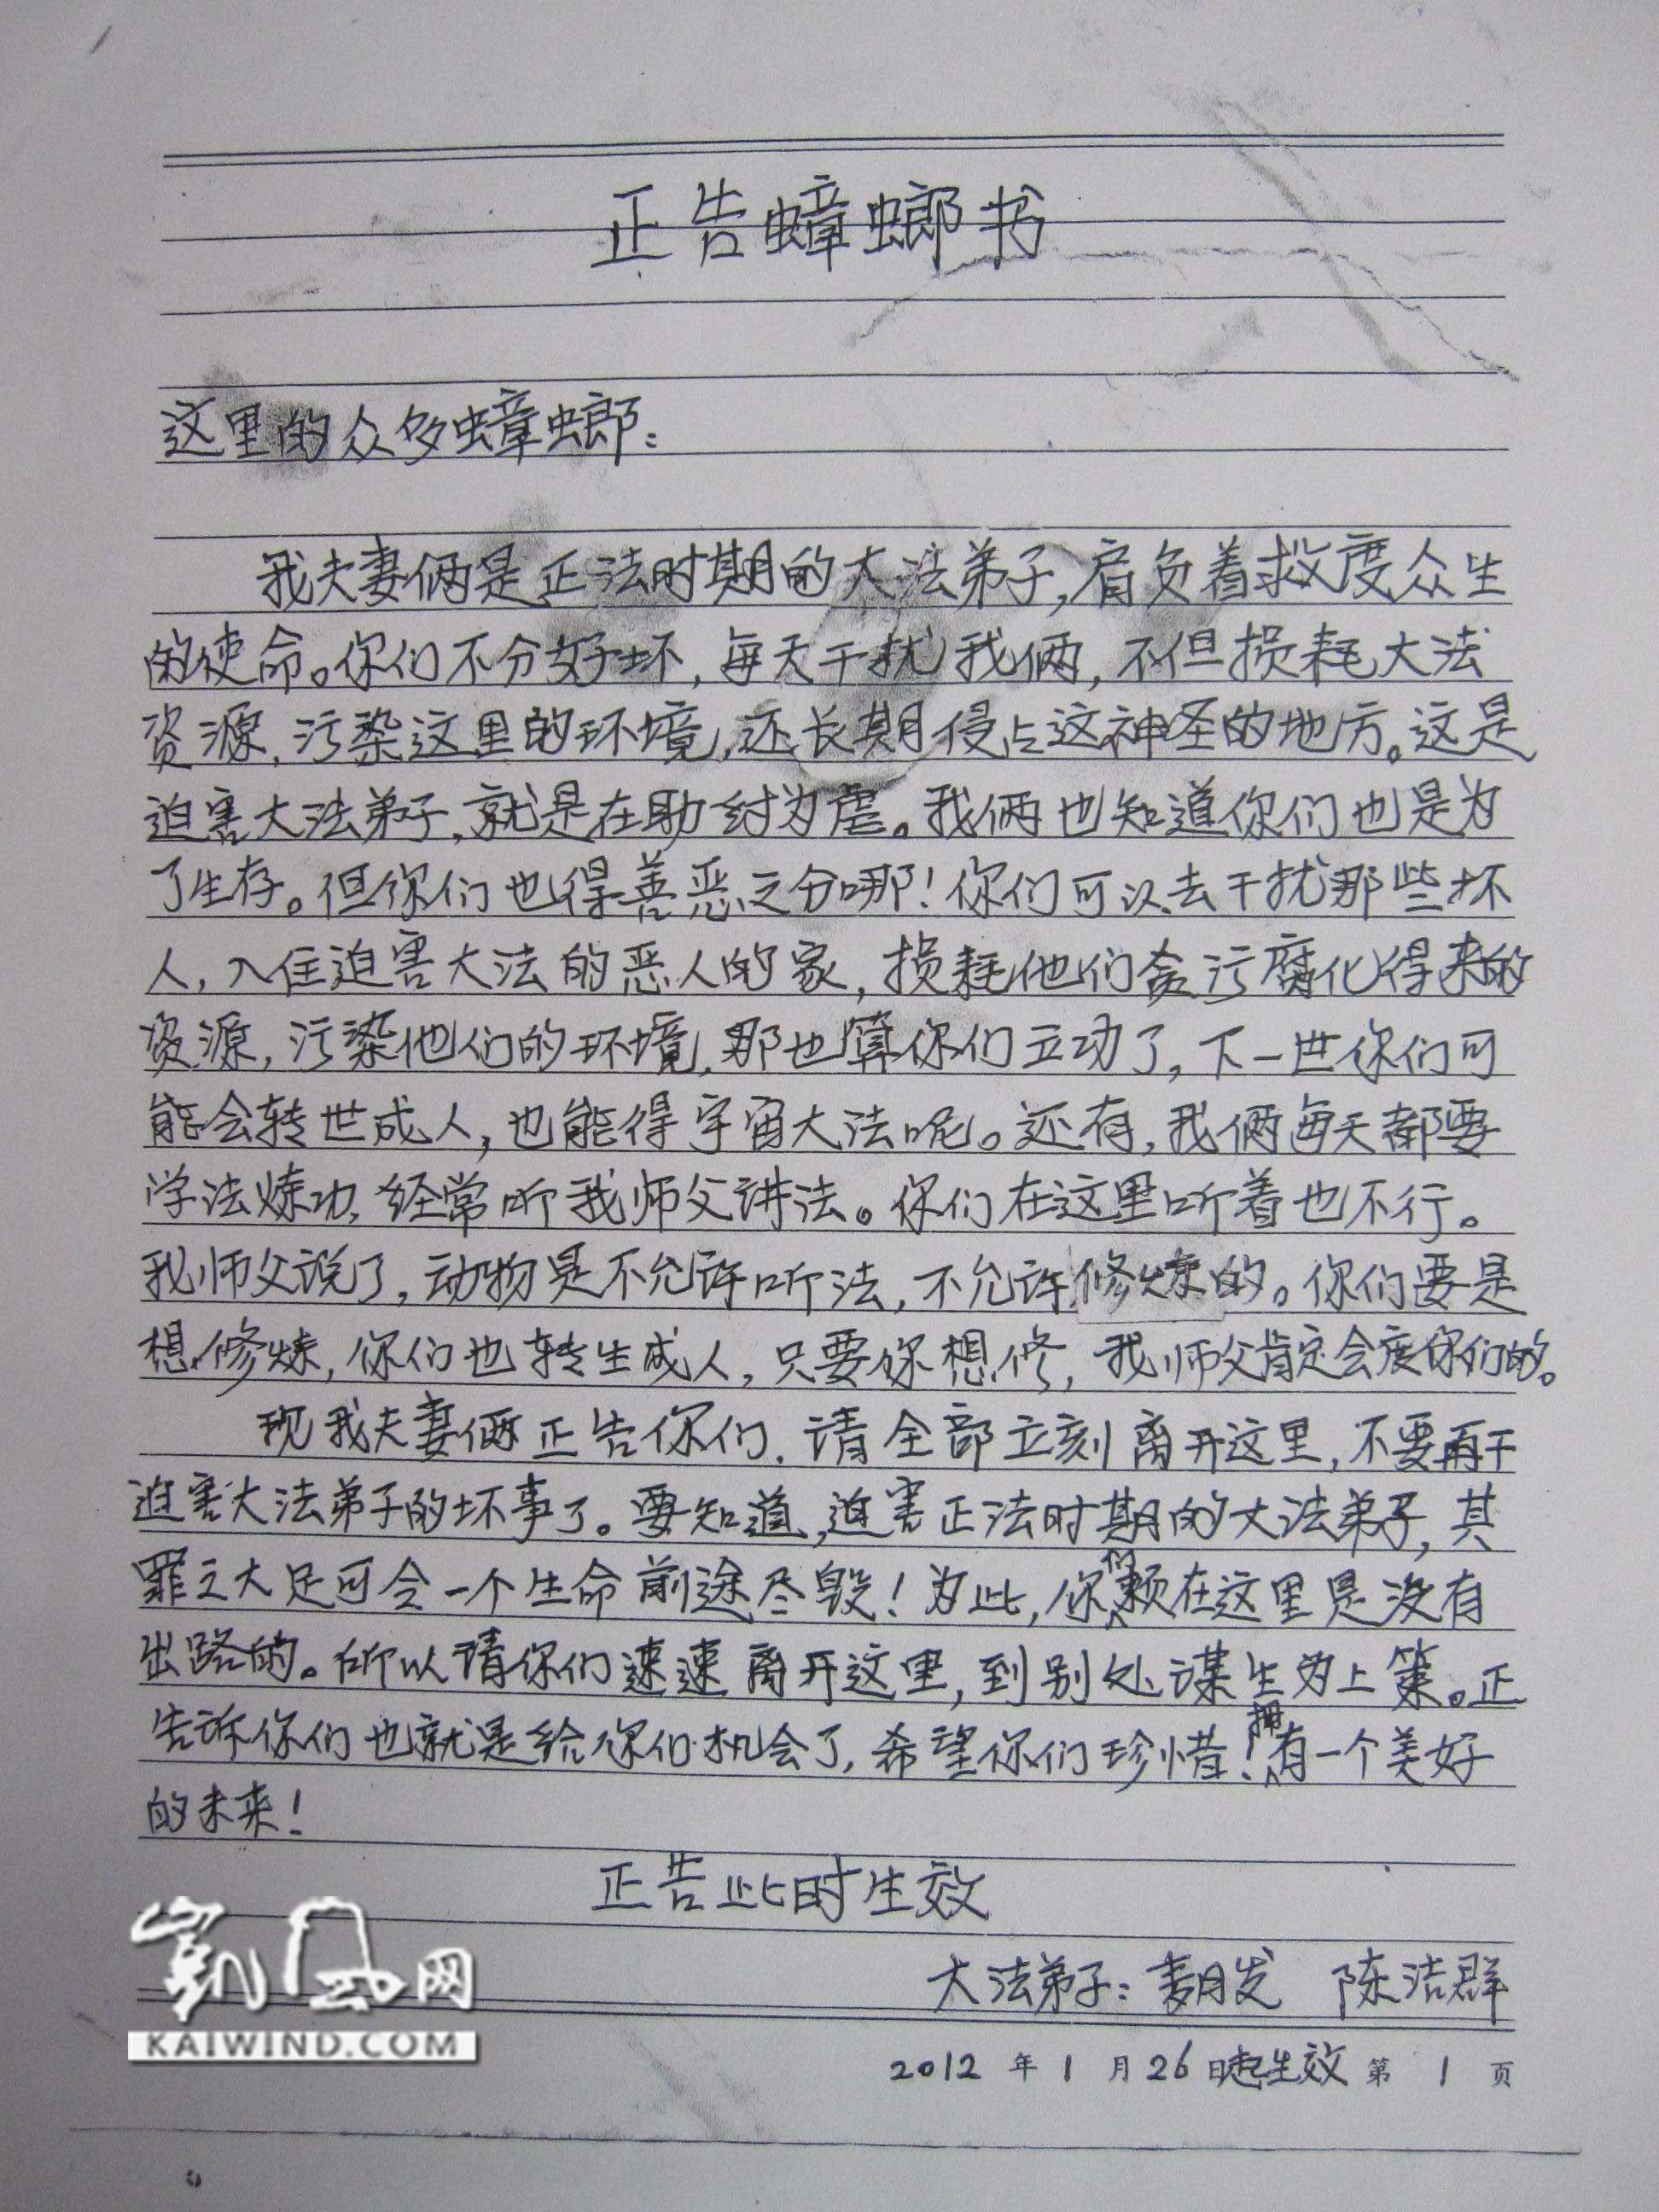 正告蟑螂书
这里的众多蟑螂：
我夫妻俩是正法时期的大法弟子，肩负着救度众生
的使命。你们不分好坏，每天干扰我俩，不但损耗大法
资源，污染这里的环境，还长期侵占这神圣的地方。这是
迫害大法弟子，就是在助纣为虐。我俩也知道你们也是为
了生存。但你们也得善恶之分哪！你们可以去干扰那些坏
人，入住迫害大法的恶人的家，损耗他们贪污腐化得来的
资源，污染他们的环境，那也算你们立功了，下一世你们可
能会转世成人，也能得宇宙大法呢。还有，我俩每天都要
学法炼功，经常听我师父讲法。你们在这里听着也不行。
我师父说了，动物是不允许听法，不允许修炼的。你们要是
想修炼，你们也转生成人，只要你想修，我师父肯定会度你们的。
现我夫妻俩正告你们，请全部立刻离开这里，不要再干
迫害大法弟子的坏事了。要知道，迫害正法时期的大法弟子，其
罪之大足可令一个生命前途尽毁！为此，你们赖在这里是没有
出路的。所以请你们速速离开这里，到别处谋生为上策。正
告诉你们也就是给你们机会了，希望你们珍惜！拥有一个美好
的未来！
正告此时生效
大法弟子：麦月发 陈洁群
2012 年 1 月 26 日起生效 第 1 页
凯风网
KAIWIND.COM